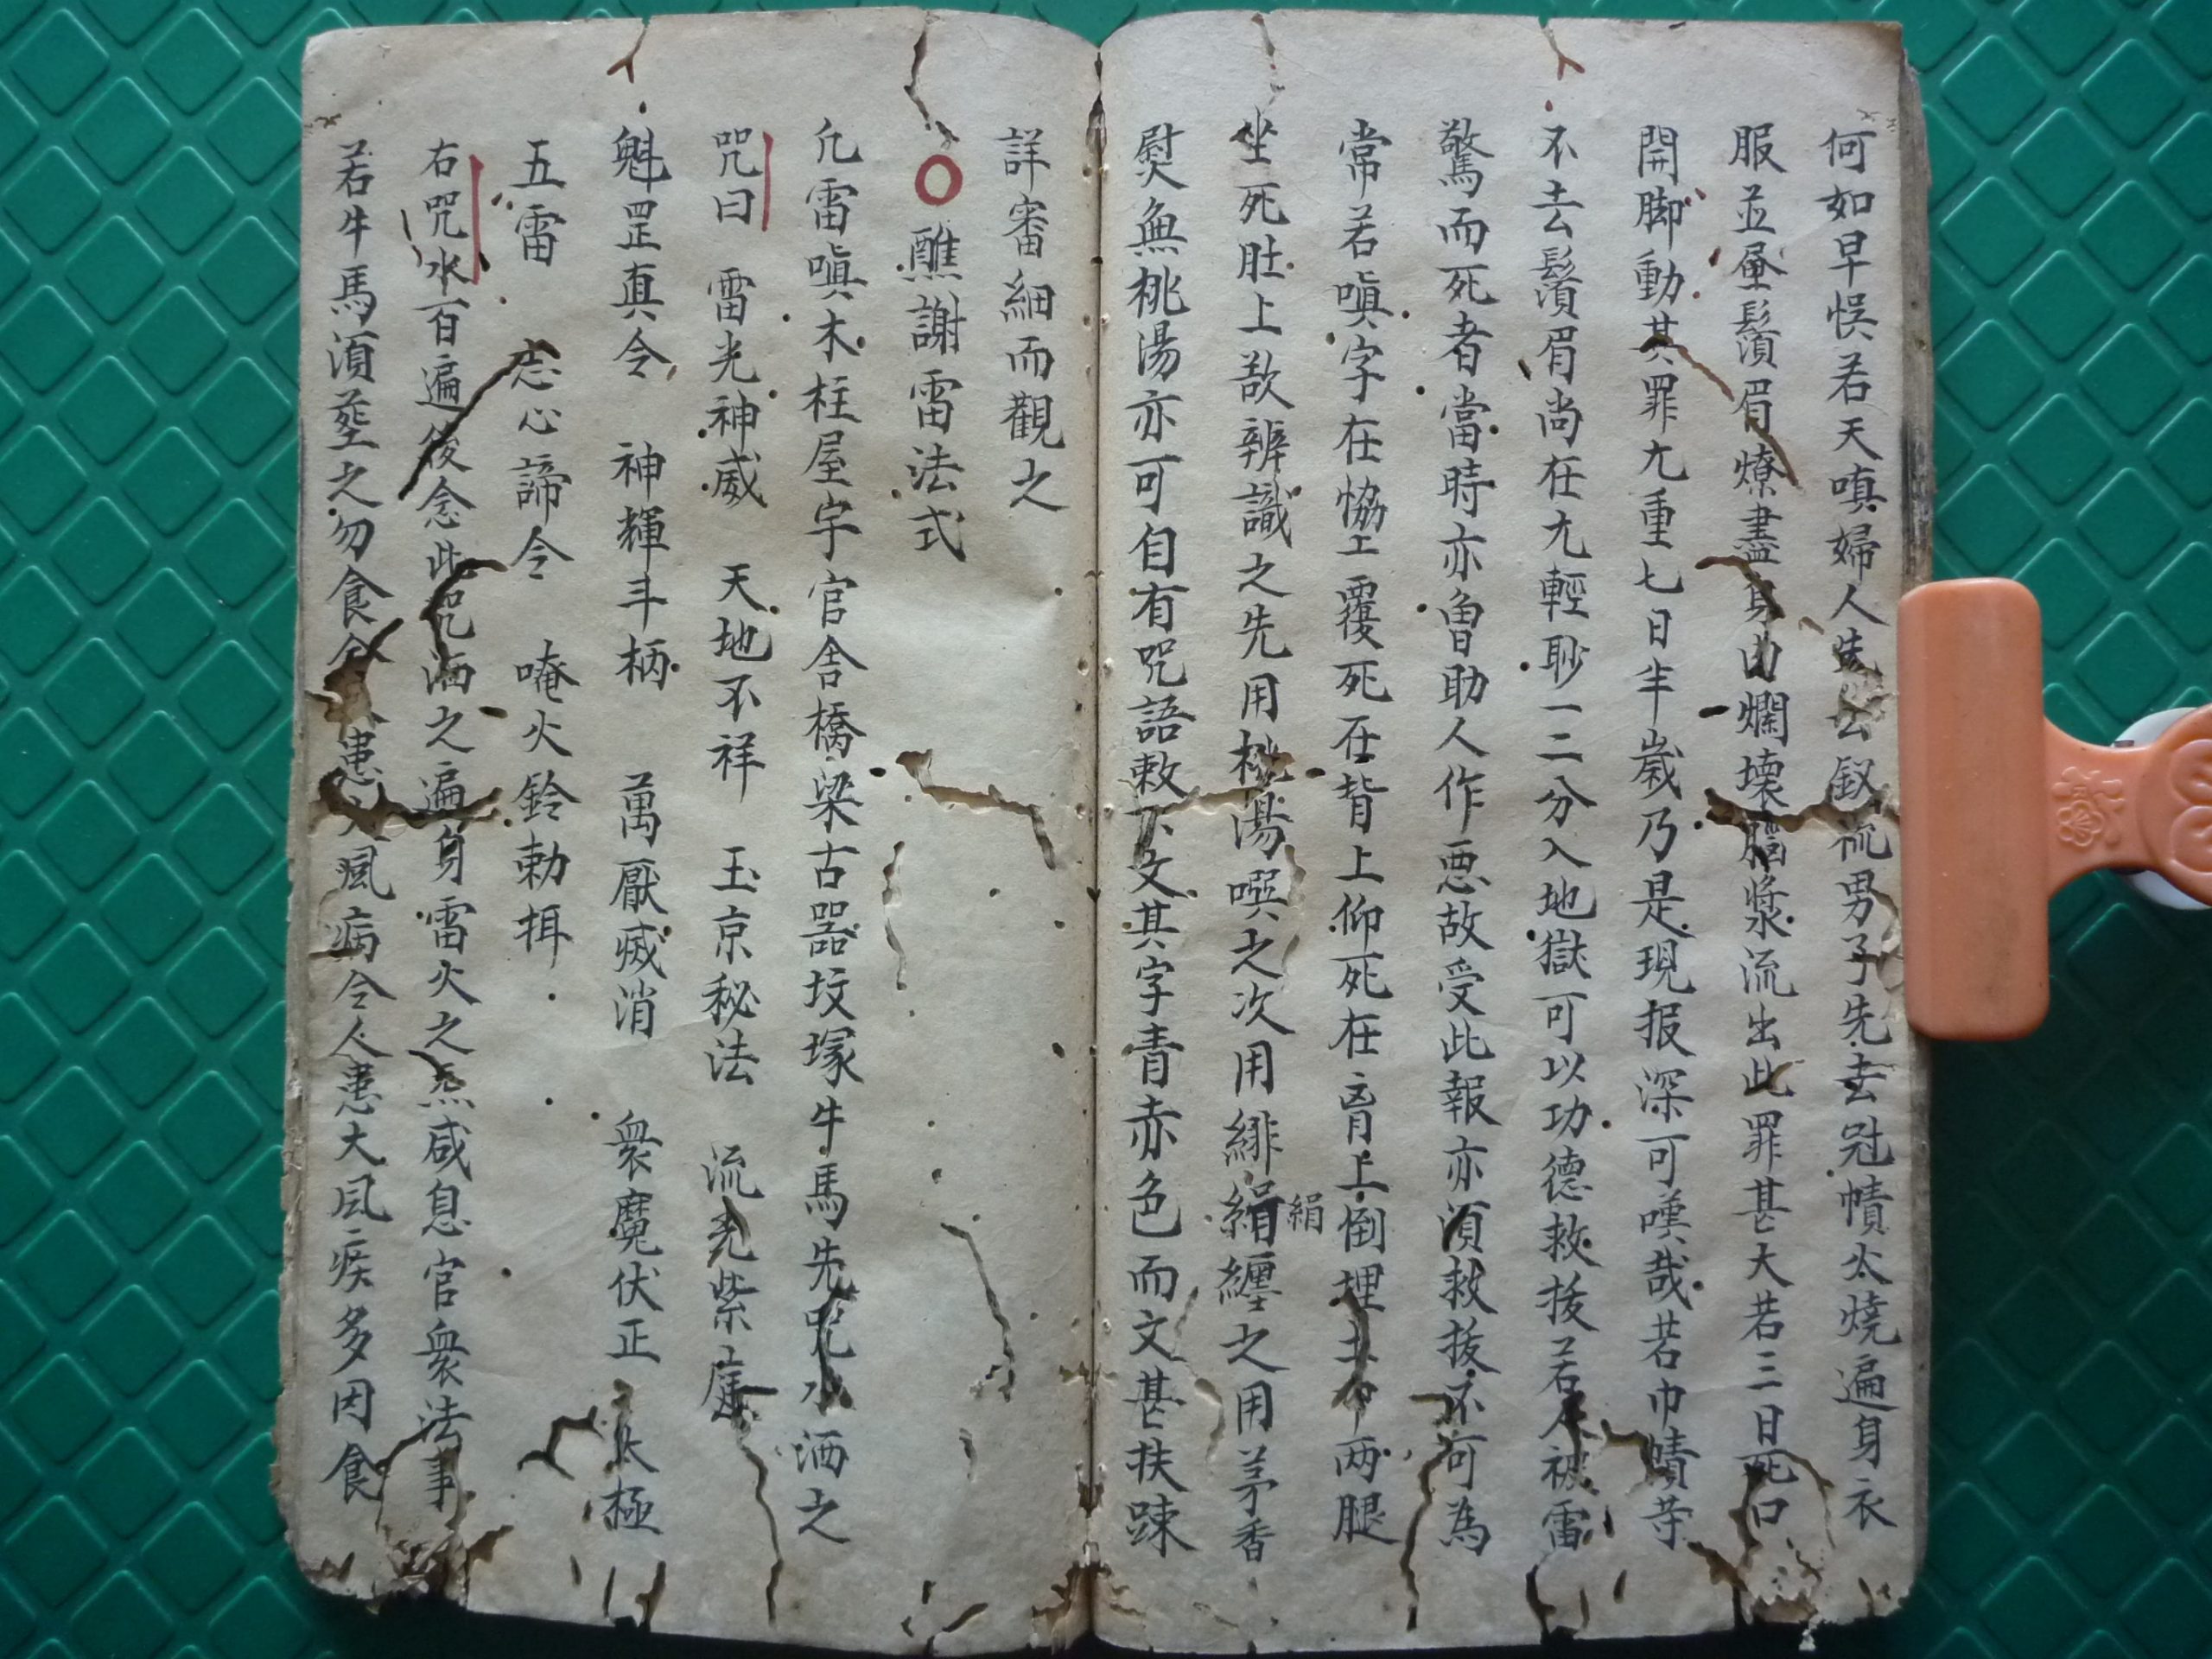 何如早悮若天嗔婦人先去釵梳男子先去冠幘太燒遍身衣
服並屋鬚眉燎盡身肉爛壊腦漿流出此罪甚大若三日死口
開脚動其罪尤重七日半嵗乃是現报深可嘆哉若巾幘等
不去鬚眉尚在尤輕耖一二分入地獄可以功德救拔若人被雷
驚而死者當時亦曽助人作悪故受此報亦須救拔不可為
常若嗔字在恊上覆死在背上仰死在肓上倒埋土中两腿
坐死肚上欲辨識之先用桃湯噀之次用緋絹纒之用茅香
絹
熨無桃湯亦可自有咒語敕下文其字青赤色而文甚扶踈
詳審細而觀之
醮謝雷法式
凢雷嗔木柱屋宇官舎橋梁古器坟塚牛馬先咒水洒之
咒曰 雷光神威 天地不祥 玉京秘法 流光紫庭
魁罡真令 神輝斗柄 萬厭滅消 衆魔伏正 太極
五雷 志心諦令 唵火鈴勅挕
右咒水百遍後念此咒洒之遍身雷火之炁咸息官衆法事
若牛馬須塟之勿食 患 瘋病令人患大风疾多因食